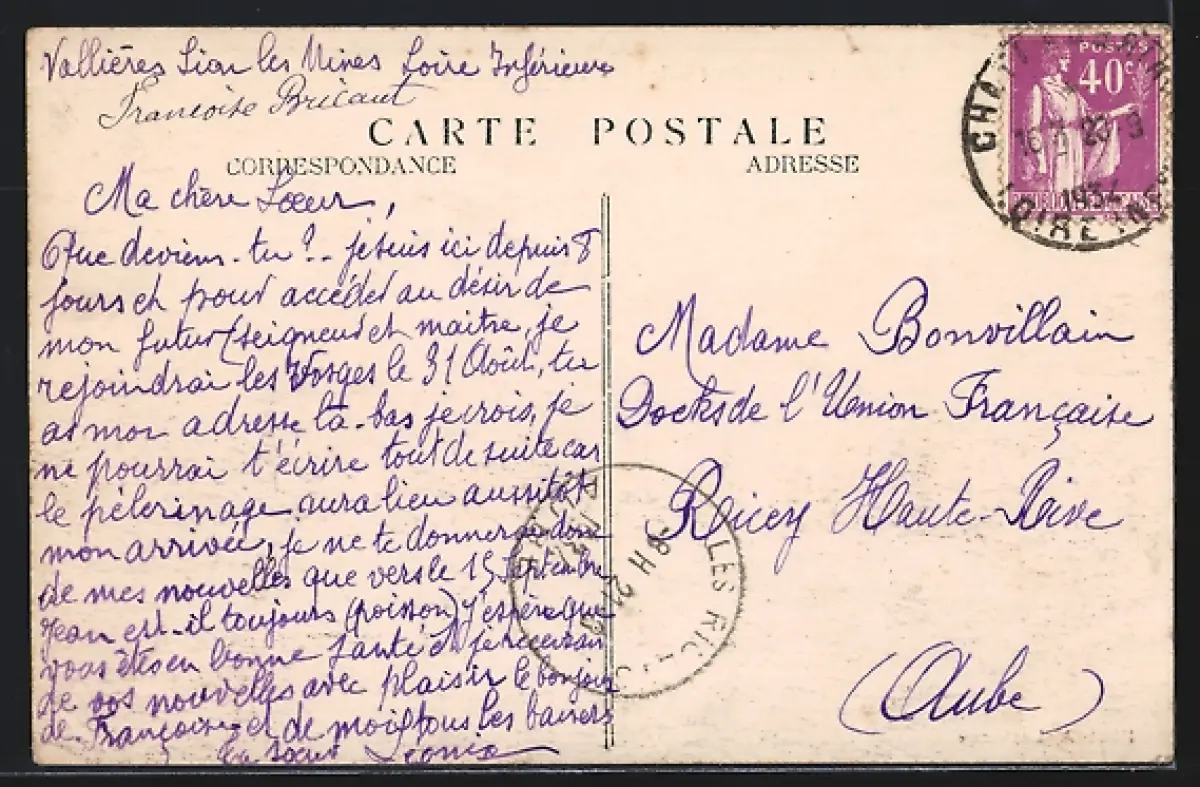 Vallières Sion les Mines Loire Inférieure
Françoise Bricaut
CARTE POSTALE
CORRESPONDANCE
ADRESSE
POSTES
40c
1934
Ma chère Soeur,
Que deviens-tu? - je suis ici depuis 8
jours et pour accéder au désir de
mon futur (seigneur et maitre, je
rejoindrai les Vosges le 31 Août, tu
as mon adresse là-bas je crois, je
ne pourrai t'écrire tout de suite car
le pèlerinage aura lieu aussitôt
mon arrivée, je ne te donnerai donc
de mes nouvelles que vers le 15 Septembre
Jean est-il toujours (poisson) J'espère que
vous êtes en bonne santé et je recevrai
de vos nouvelles avec plaisir le bonjour
de Françoise et de moi tous les baisers
Ta soeur Léonie
Madame Bonvillain
Docks de l'Union Française
Ricey Haute-Rive
(Aube)
LES RIC
8H